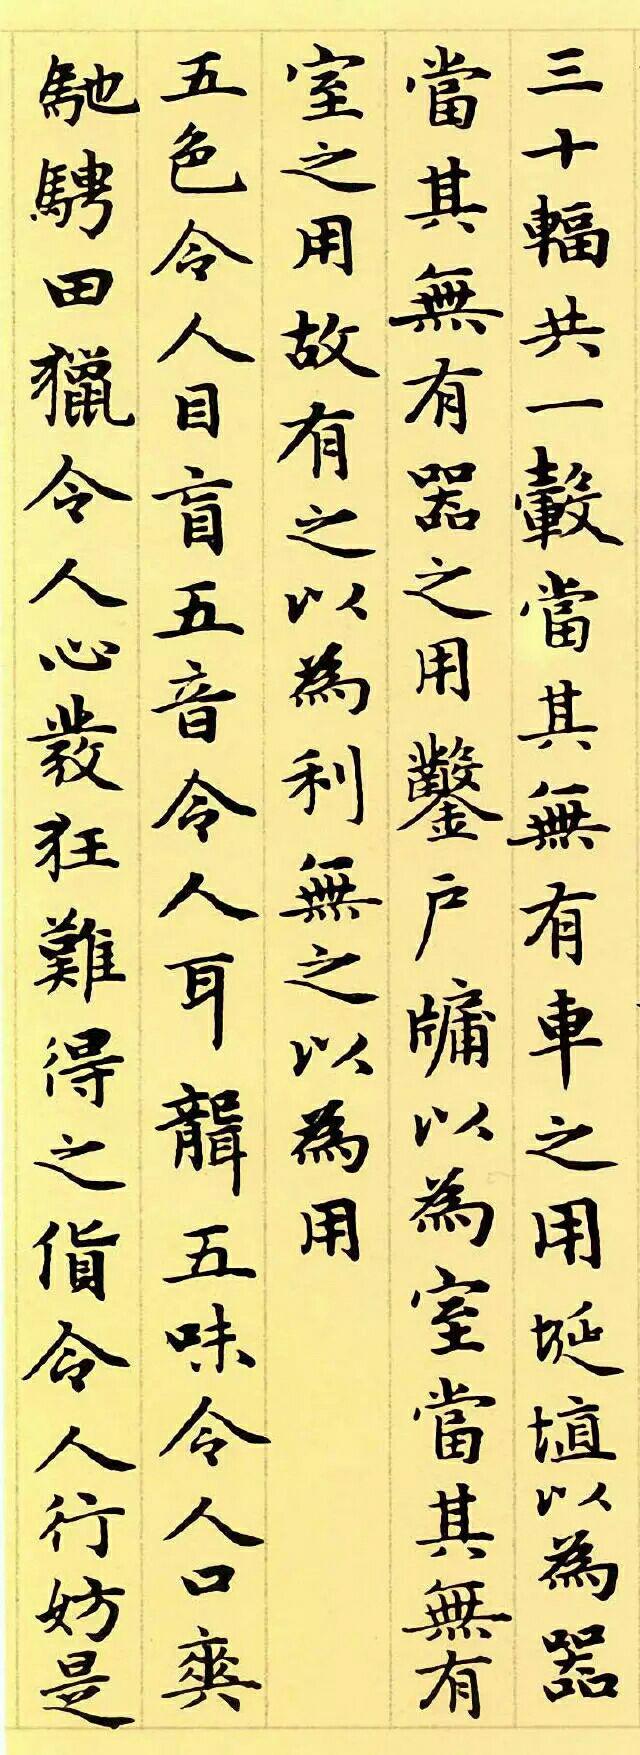 三十輻共一轂當其無有車之用埏埴以為器
當其無有器之用鑿戶牖以為室當其無有
室之用故有之以為利無之以為用
五色令人目盲五音令人耳聾五味令人口爽
馳騁田獵令人心發狂難得之貨令人行妨是